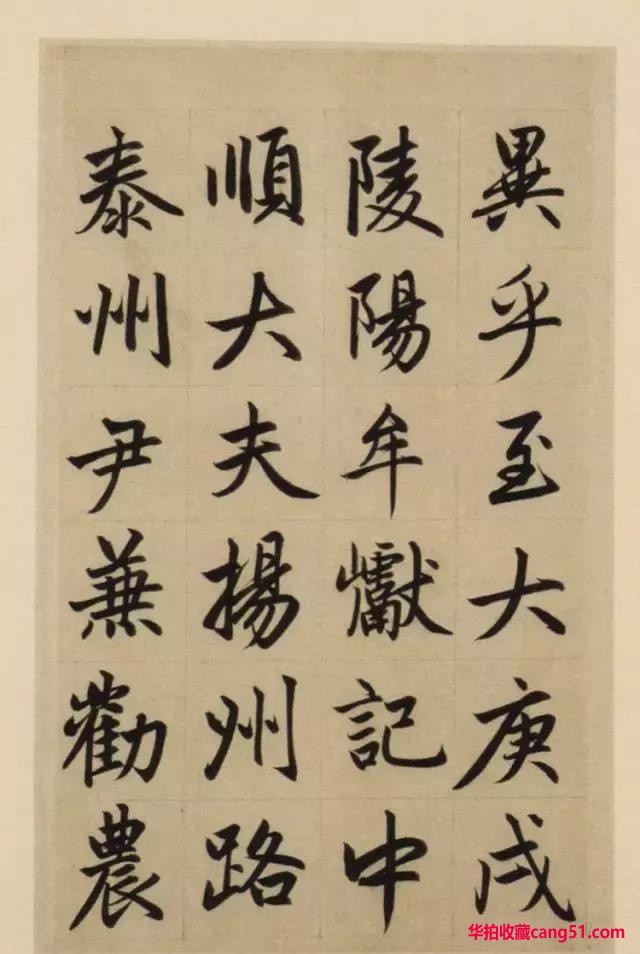 異乎至大庚戌
陵陽牟巘記中
順大夫揚州路
泰州尹兼勸農
华拍收藏cang51.com